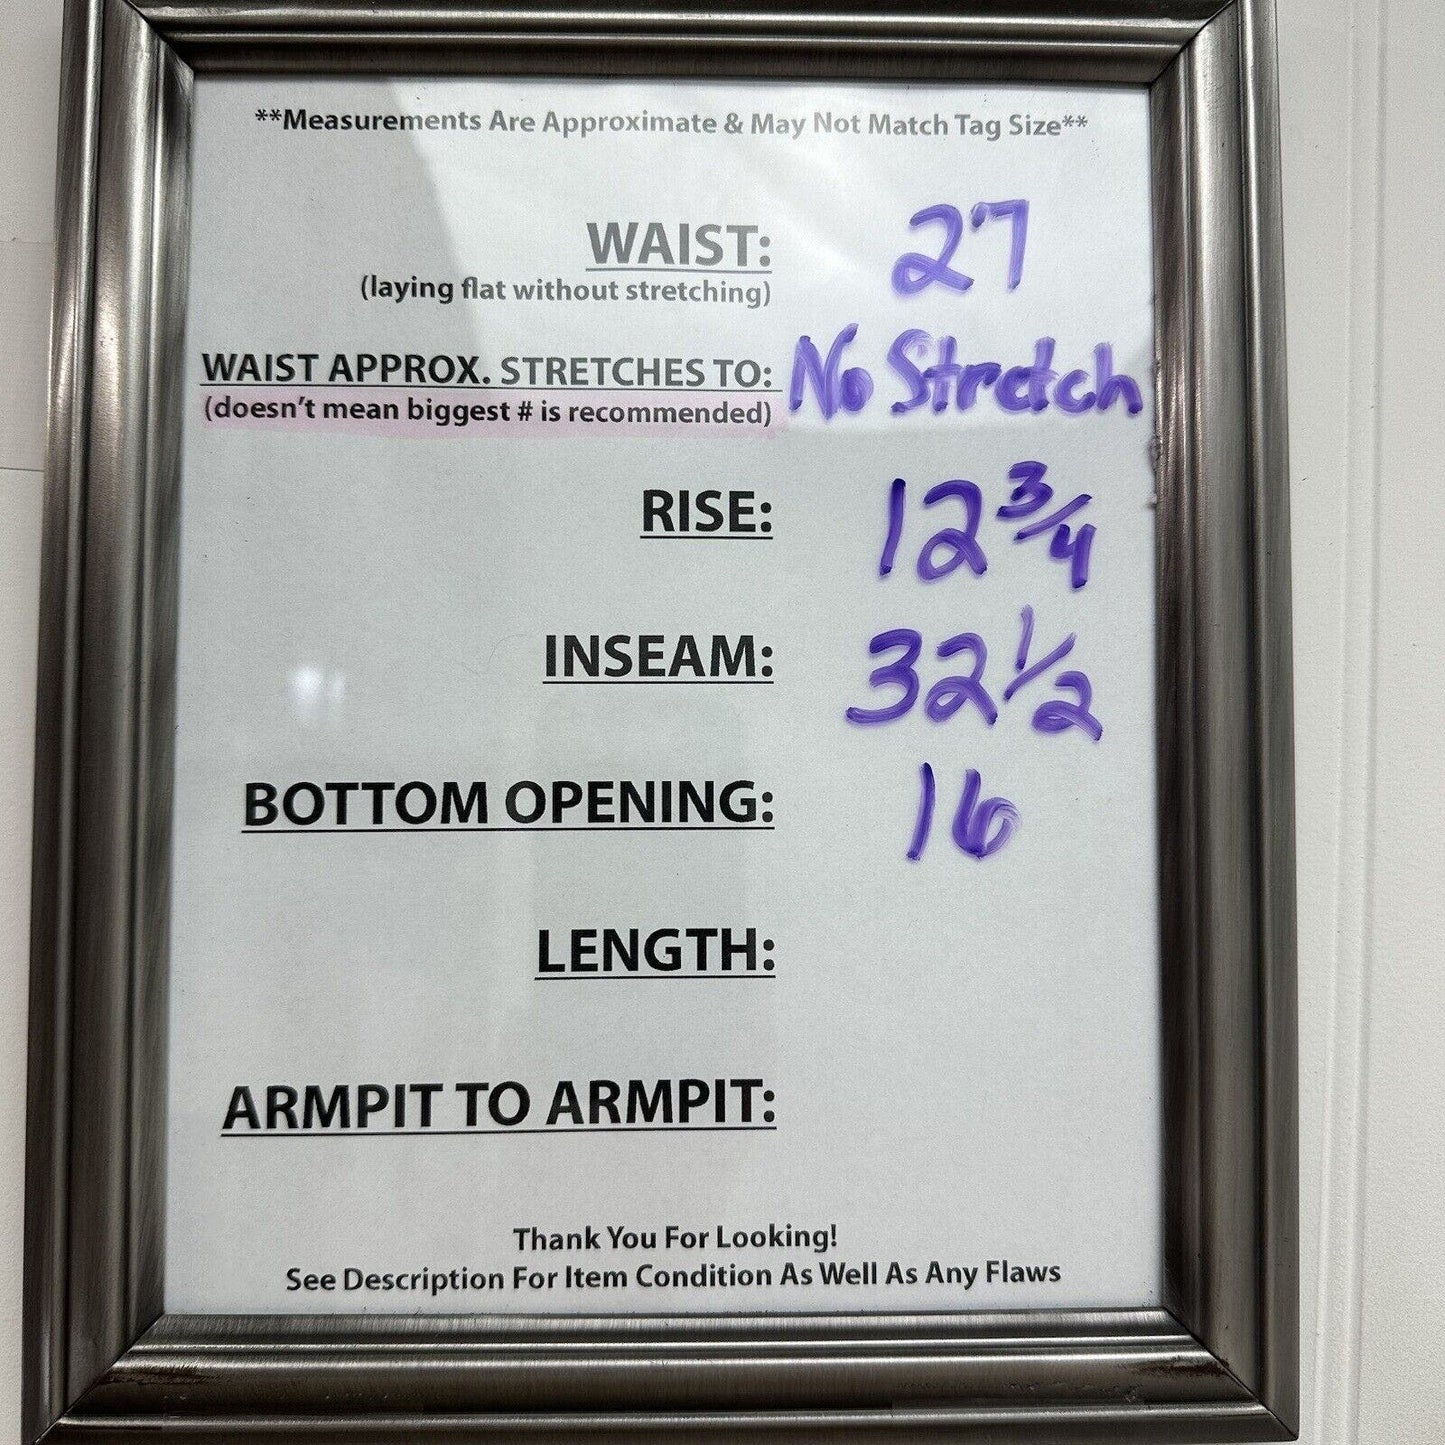 **Measurements Are Approximate & May Not Match Tag Size**
WAIST: 27
(laying flat without stretching)
WAIST APPROX. STRETCHES TO: No Stretch
(doesn't mean biggest # is recommended)
RISE: 12 3/4
INSEAM: 32 1/2
BOTTOM OPENING: 16
LENGTH:
ARMPIT TO ARMPIT:
Thank You For Looking!
See Description For Item Condition As Well As Any Flaws